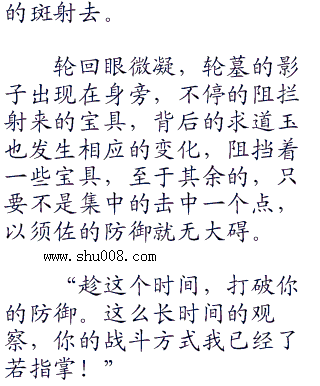 的斑射去。
轮回眼微凝，轮墓的影
子出现在身旁，不停的阻拦
射来的宝具，背后的求道玉
也发生相应的变化，阻挡着
一些宝具，至于其余的，只
要不是集中的击中一个点，
以须佐的防御就无大碍。
www.shu008.com
“趁这个时间，打破你
的防御。这么长时间的观
察，你的战斗方式我已经了
若指掌！”